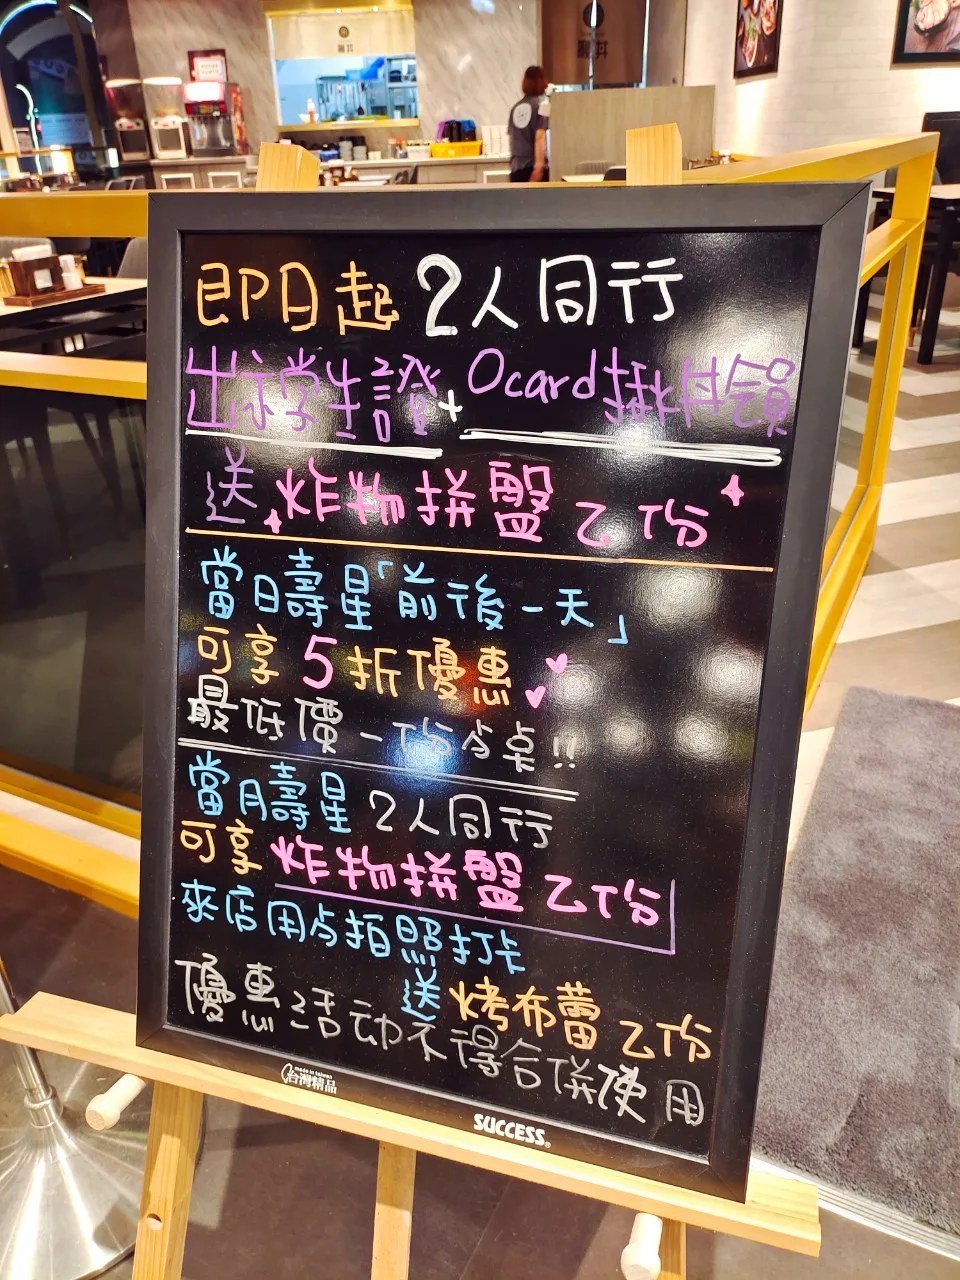 即日起 2人同行
出示學生證+Ocard揪拼領
送炸物拼盤乙份
當日壽星「前後一天」
可享5折優惠
最低價一份/桌!!
當月壽星2人同行
可享炸物拼盤乙份
來店用占拍照打卡
送烤布蕾乙份
優惠活動不得合併使用
made in taiwan
台灣精品
SUCCESS